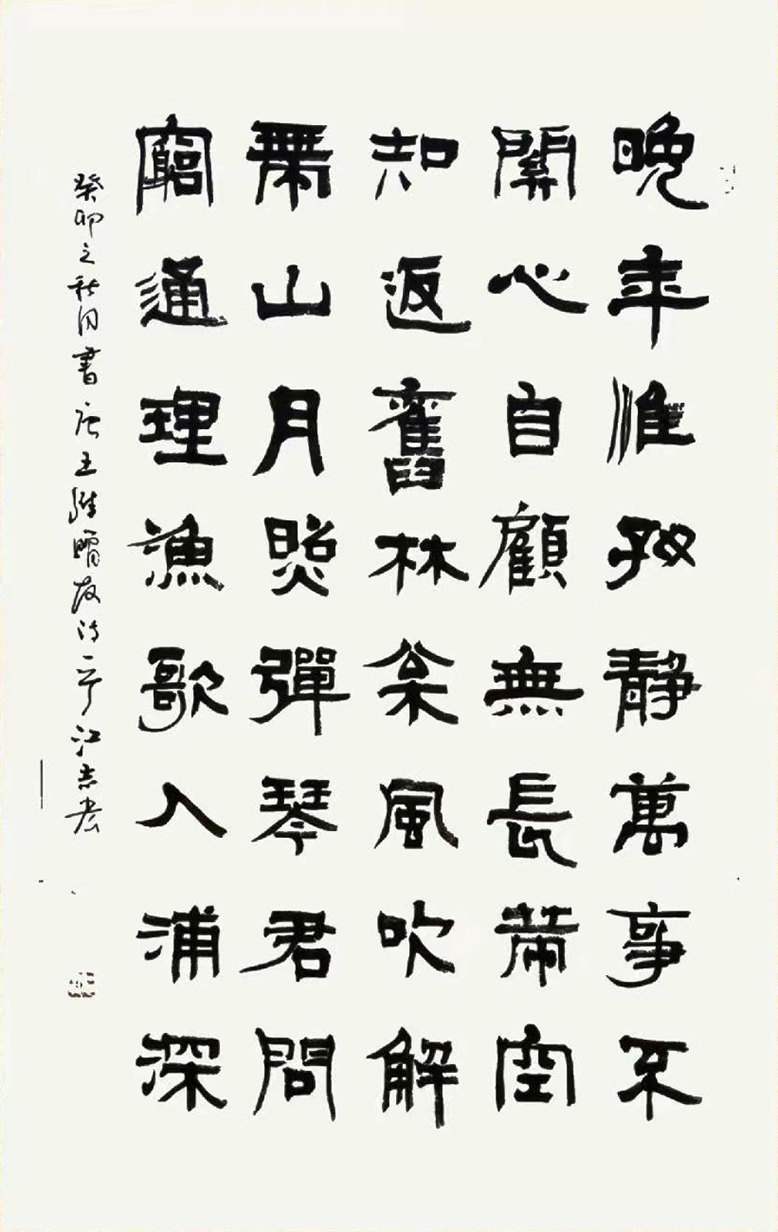 晚年惟好靜萬事不
關心自顧無長策空
知返舊林枀風吹解
帶山月照彈琴君問
窮通理漁歌入浦深
癸卯之秋月書唐王維友诗一江志